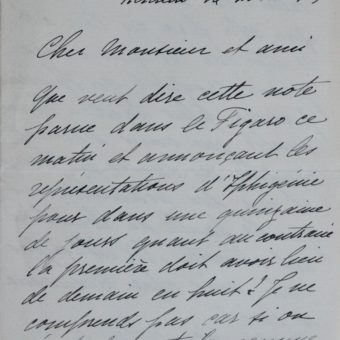 Cher Monsieur et ami
Que veut dire cette note
parue dans le Figaro ce
matin et annonçant les
représentations d'Iphigénie
pour dans une quinzaine
de jours quant au contraire
la première doit avoir lieu
de demain en huit? Je ne
comprends pas car si on